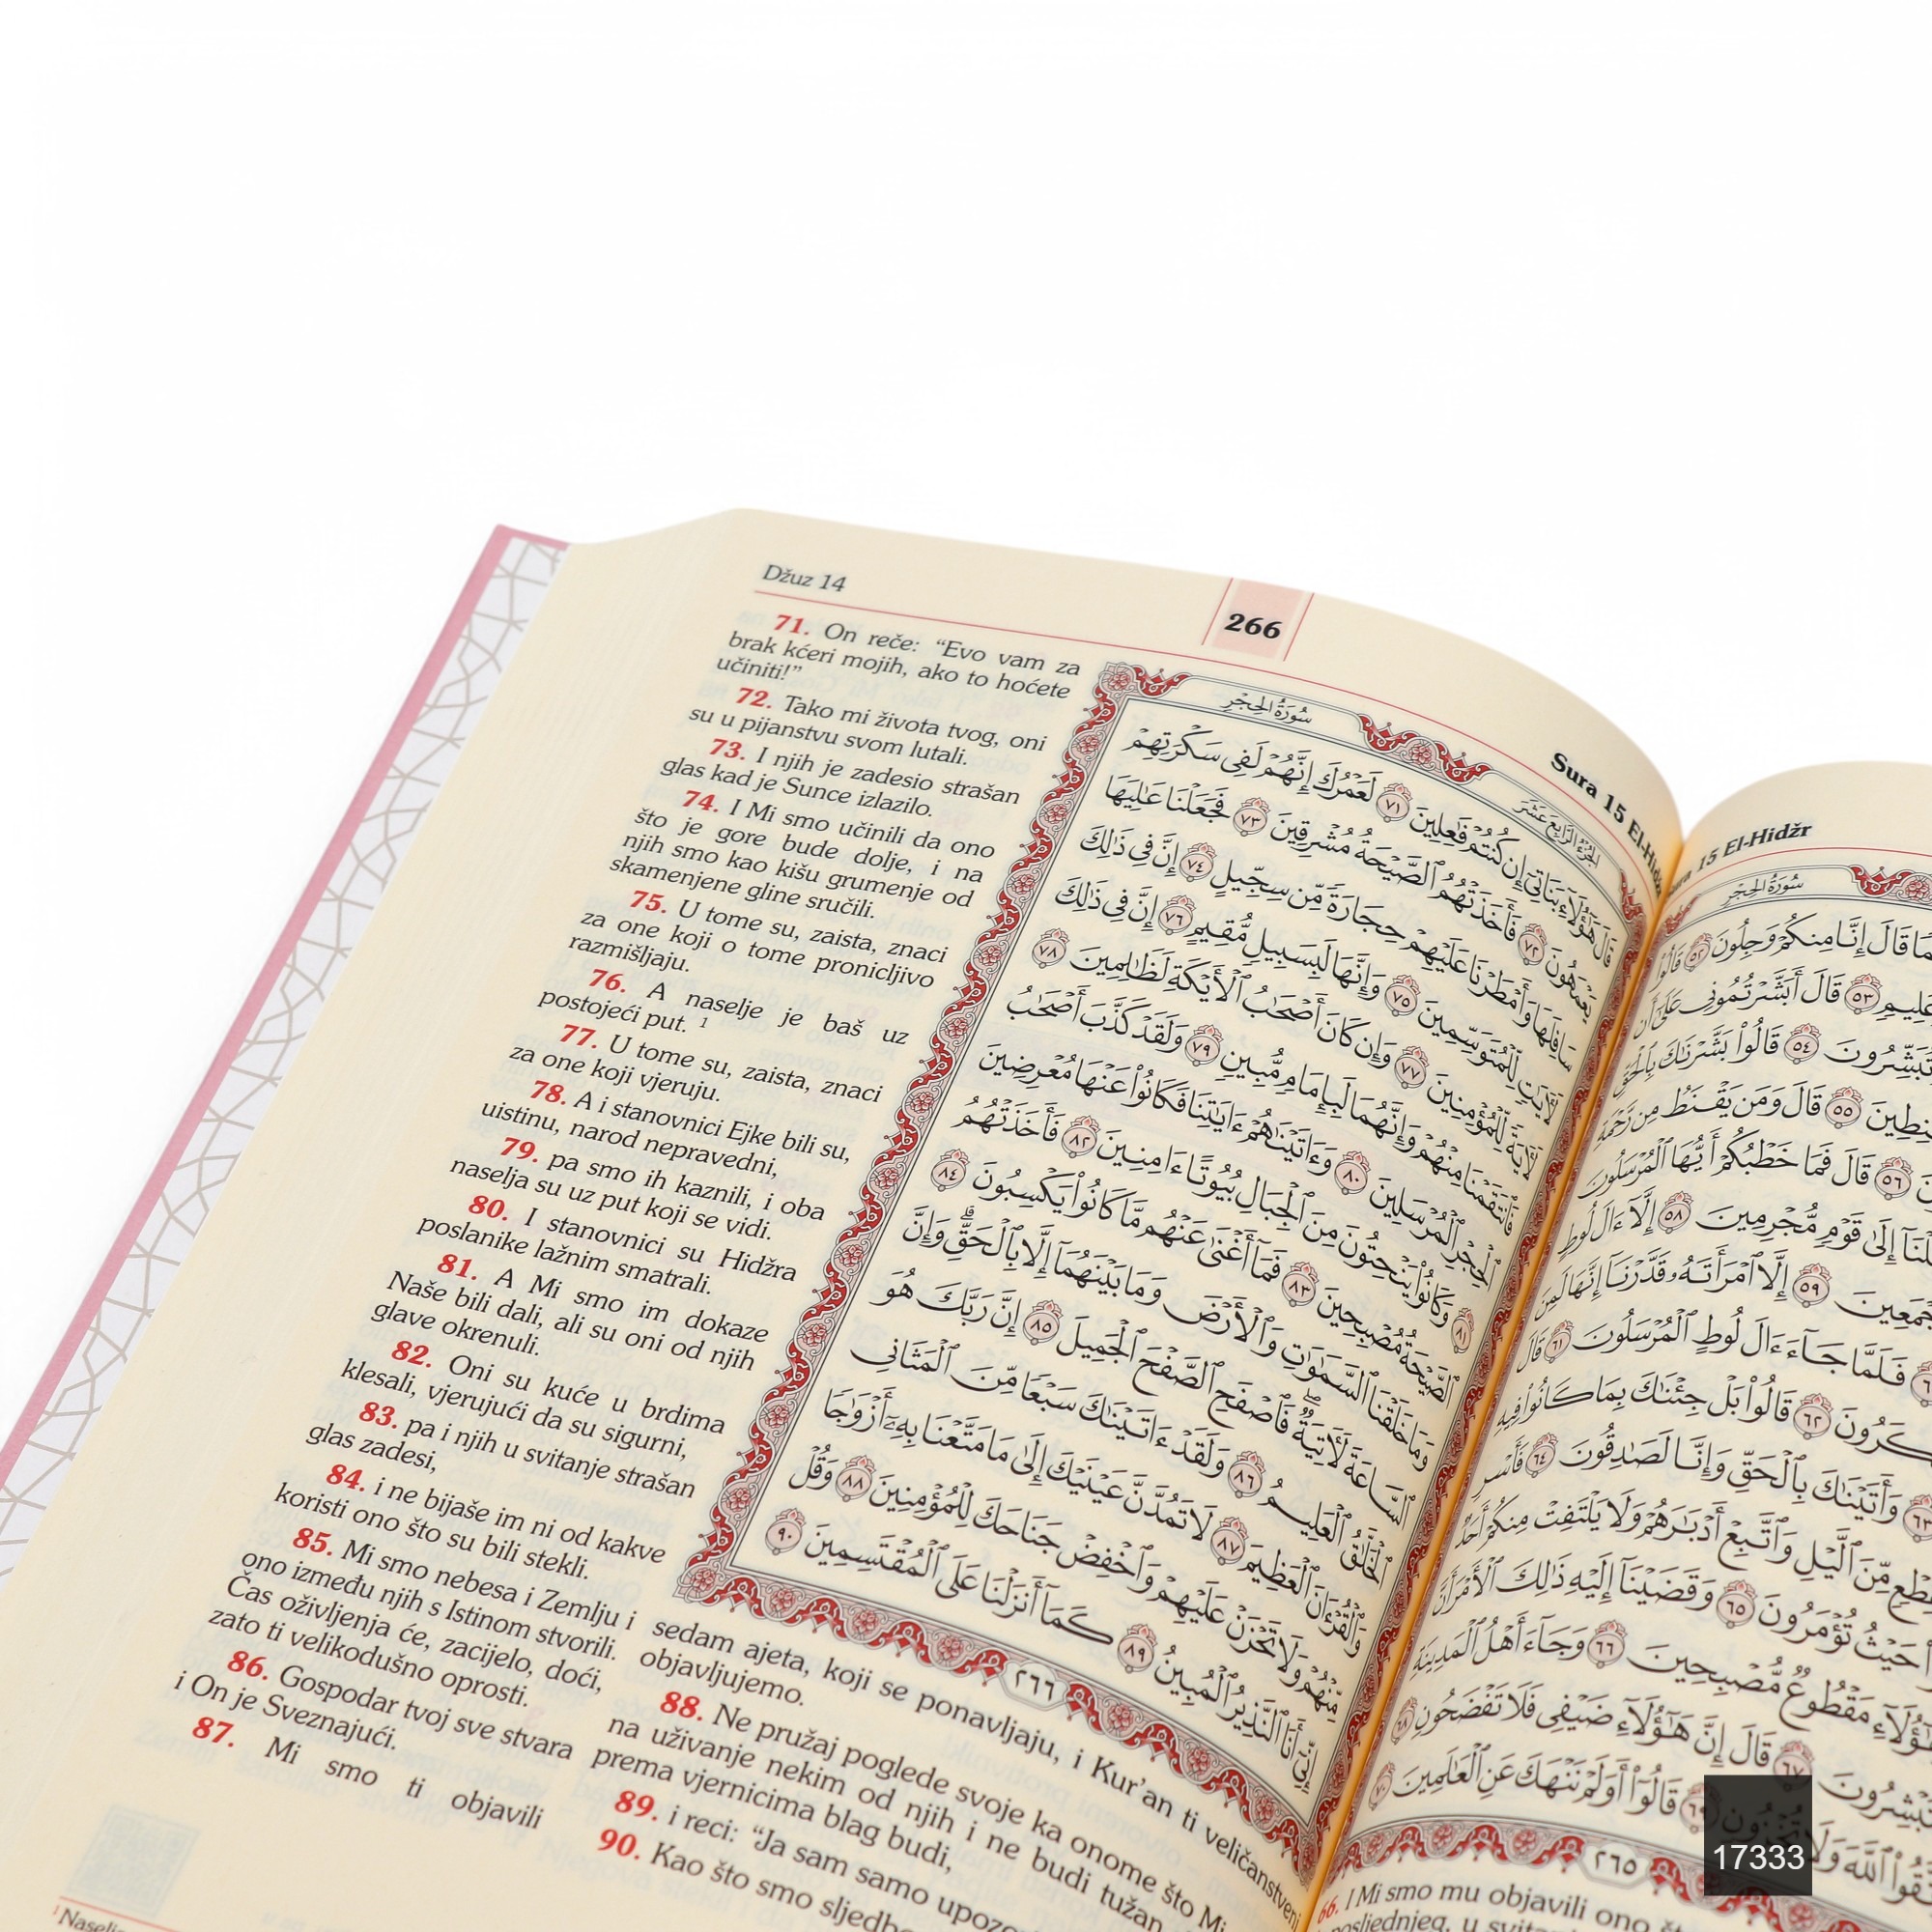 Džuz 14
266
Sura 15 El-Hidžr
71. On reče: “Evo vam za
brak kćeri mojih, ako to hoćete
učiniti!”
72. Tako mi života tvog, oni
su u pijanstvu svom lutali.
73. I njih je zadesio strašan
glas kad je Sunce izlazilo.
74. I Mi smo učinili da ono
što je gore bude dolje, i na
njih smo kao kišu grumenje od
skamenjene gline sručili.
75. U tome su, zaista, znaci
za one koji o tome pronicljivo
razmišljaju.
76. A naselje je baš uz
postojeći put. 1
77. U tome su, zaista, znaci
za one koji vjeruju.
78. A i stanovnici Ejke bili su,
uistinu, narod nepravedni,
79. pa smo ih kaznili, i oba
naselja su uz put koji se vidi.
80. I stanovnici su Hidžra
poslanike lažnim smatrali.
81. A Mi smo im dokaze
Naše bili dali, ali su oni od njih
glave okrenuli.
82. Oni su kuće u brdima
klesali, vjerujući da su sigurni,
83. pa i njih u svitanje strašan
glas zadesi,
84. i ne bijaše im ni od kakve
koristi ono što su bili stekli.
85. Mi smo nebesa i Zemlju i
ono između njih s Istinom stvorili.
Čas oživljenja će, zacijelo, doći,
zato ti velikodušno oprosti.
86. Gospodar tvoj sve stvara
i On je Sveznajući.
87. Mi smo ti objavili
sedam ajeta, koji se ponavljaju, i Kur’an ti veličanstveni
objavljujemo.
88. Ne pružaj poglede svoje ka onome što Mi
na uživanje nekim od njih i ne budi tužan
prema vjernicima blag budi,
89. i reci: “Ja sam samo
90. Kao što smo
سُورَةُ الحِجْرِ
الجُزْءُ الرَّابِعَ عَشَرَ
قَالَ هَٰٓؤُلَآءِ بَنَاتِيٓ إِن كُنتُمْ فَٰعِلِينَ ٧١ لَعَمْرُكَ إِنَّهُمْ لَفِى سَكْرَتِهِمْ
يَعْمَهُونَ ٧٢ فَأَخَذَتْهُمُ ٱلصَّيْحَةُ مُشْرِقِينَ ٧٣ فَجَعَلْنَا عَٰلِيَهَا
سَافِلَهَا وَأَمْطَرْنَا عَلَيْهِمْ حِجَارَةً مِّن سِجِّيلٍ ٧٤ إِنَّ فِى ذَٰلِكَ
لَءَايَٰتٍ لِّلْمُتَوَسِّمِينَ ٧٥ وَإِنَّهَا لَبِسَبِيلٍ مُّقِيمٍ ٧٦ إِنَّ فِى ذَٰلِكَ
لَءَايَةً لِّلْمُؤْمِنِينَ ٧٧ وَإِن كَانَ أَصْحَٰبُ ٱلْأَيْكَةِ لَظَٰلِمِينَ ٧٨
فَٱنتَقَمْنَا مِنْهُمْ وَإِنَّهُمَا لَبِإِمَامٍ مُّبِينٍ ٧٩ وَلَقَدْ كَذَّبَ أَصْحَٰبُ
ٱلْحِجْرِ ٱلْمُرْسَلِينَ ٨٠ وَءَاتَيْنَٰهُمْ ءَايَٰتِنَا فَكَانُوا۟ عَنْهَا مُعْرِضِينَ
٨١ وَكَانُوا۟ يَنْحِتُونَ مِنَ ٱلْجِبَالِ بُيُوتًا ءَامِنِينَ ٨٢ فَأَخَذَتْهُمُ
ٱلصَّيْحَةُ مُصْبِحِينَ ٨٣ فَمَآ أَغْنَىٰ عَنْهُم مَّا كَانُوا۟ يَكْسِبُونَ ٨٤
وَمَا خَلَقْنَا ٱلسَّمَٰوَٰتِ وَٱلْأَرْضَ وَمَا بَيْنَهُمَآ إِلَّا بِٱلْحَقِّ وَإِنَّ
ٱلسَّاعَةَ لَءَاتِيَةٌ فَٱصْفَحِ ٱلصَّفْحَ ٱلْجَمِيلَ ٨٥ إِنَّ رَبَّكَ هُوَ
ٱلْخَلَّٰقُ ٱلْعَلِيمُ ٨٦ وَلَقَدْ ءَاتَيْنَٰكَ سَبْعًا مِّنَ ٱلْمَثَانِى
وَٱلْقُرْءَانَ ٱلْعَظِيمَ ٨٧ لَا تَمُدَّنَّ عَيْنَيْكَ إِلَىٰ مَا مَتَّعْنَا بِهِۦٓ أَزْوَٰجًا
مِّنْهُمْ وَلَا تَحْزَنْ عَلَيْهِمْ وَٱخْفِضْ جَنَاحَكَ لِلْمُؤْمِنِينَ ٨٨ وَقُلْ
إِنِّىٓ أَنَا ٱلنَّذِيرُ ٱلْمُبِينُ ٨٩ كَمَآ أَنزَلْنَا عَلَى ٱلْمُقْتَسِمِينَ ٩٠
٢٦٦
15 El-Hidžr
سُورَةُ الحِجْرِ
قَالَ إِنَّا مِنكُمْ وَجِلُونَ ٥٢ قَالُوا۟
٥٣ قَالَ أَبَشَّرْتُمُونِى عَلَىٰٓ أَن
تُبَشِّرُونَ ٥٤ قَالُوا۟ بَشَّرْنَٰكَ بِٱلْحَقِّ
٥٥ قَالَ وَمَن يَقْنَطُ مِن رَّحْمَةِ
٥٦ قَالَ فَمَا خَطْبُكُمْ أَيُّهَا ٱلْمُرْسَلُونَ
إِلَىٰ قَوْمٍ مُّجْرِمِينَ ٥٨ إِلَّآ ءَالَ لُوطٍ
٥٩ إِلَّا ٱمْرَأَتَهُۥ قَدَّرْنَآ إِنَّهَا لَمِنَ
فَلَمَّا جَآءَ ءَالَ لُوطٍ ٱلْمُرْسَلُونَ ٦١ قَالَ
٦٢ قَالُوا۟ بَلْ جِئْنَٰكَ بِمَا كَانُوا۟ فِيهِ
٦٣ وَأَتَيْنَٰكَ بِٱلْحَقِّ وَإِنَّا لَصَٰدِقُونَ ٦٤ فَأَسْرِ
مِّنَ ٱلَّيْلِ وَٱتَّبِعْ أَدْبَٰرَهُمْ وَلَا يَلْتَفِتْ مِنكُمْ أَحَدٌ
حَيْثُ تُؤْمَرُونَ ٦٥ وَقَضَيْنَآ إِلَيْهِ ذَٰلِكَ ٱلْأَمْرَ أَنَّ
مَقْطُوعٌ مُّصْبِحِينَ ٦٦ وَجَآءَ أَهْلُ ٱلْمَدِينَةِ
٦٧ قَالَ إِنَّ هَٰٓؤُلَآءِ ضَيْفِى فَلَا تَفْضَحُونِ ٦٨
ٱللَّهَ وَلَا
٦٩ قَالُوٓا۟ أَوَلَمْ نَنْهَكَ عَنِ ٱلْعَٰلَمِينَ ٧٠
٢٦٥
66. I Mi smo mu objavili ono
17333